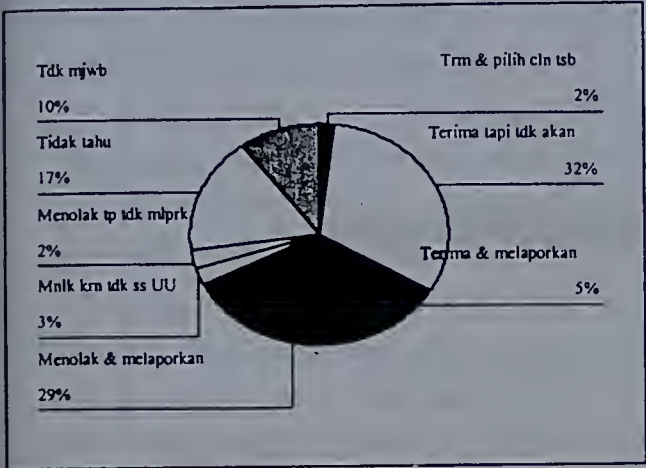 Tdk mjwb
10%
Tidak tahu
17%
Menolak tp tdk mlprk
2%
Mnlk krn tdk ss UU
3%
Menolak & melaporkan
29%
Trm & pilih cln tsb
2%
Terima tapi tdk akan
32%
Terima & melaporkan
5%